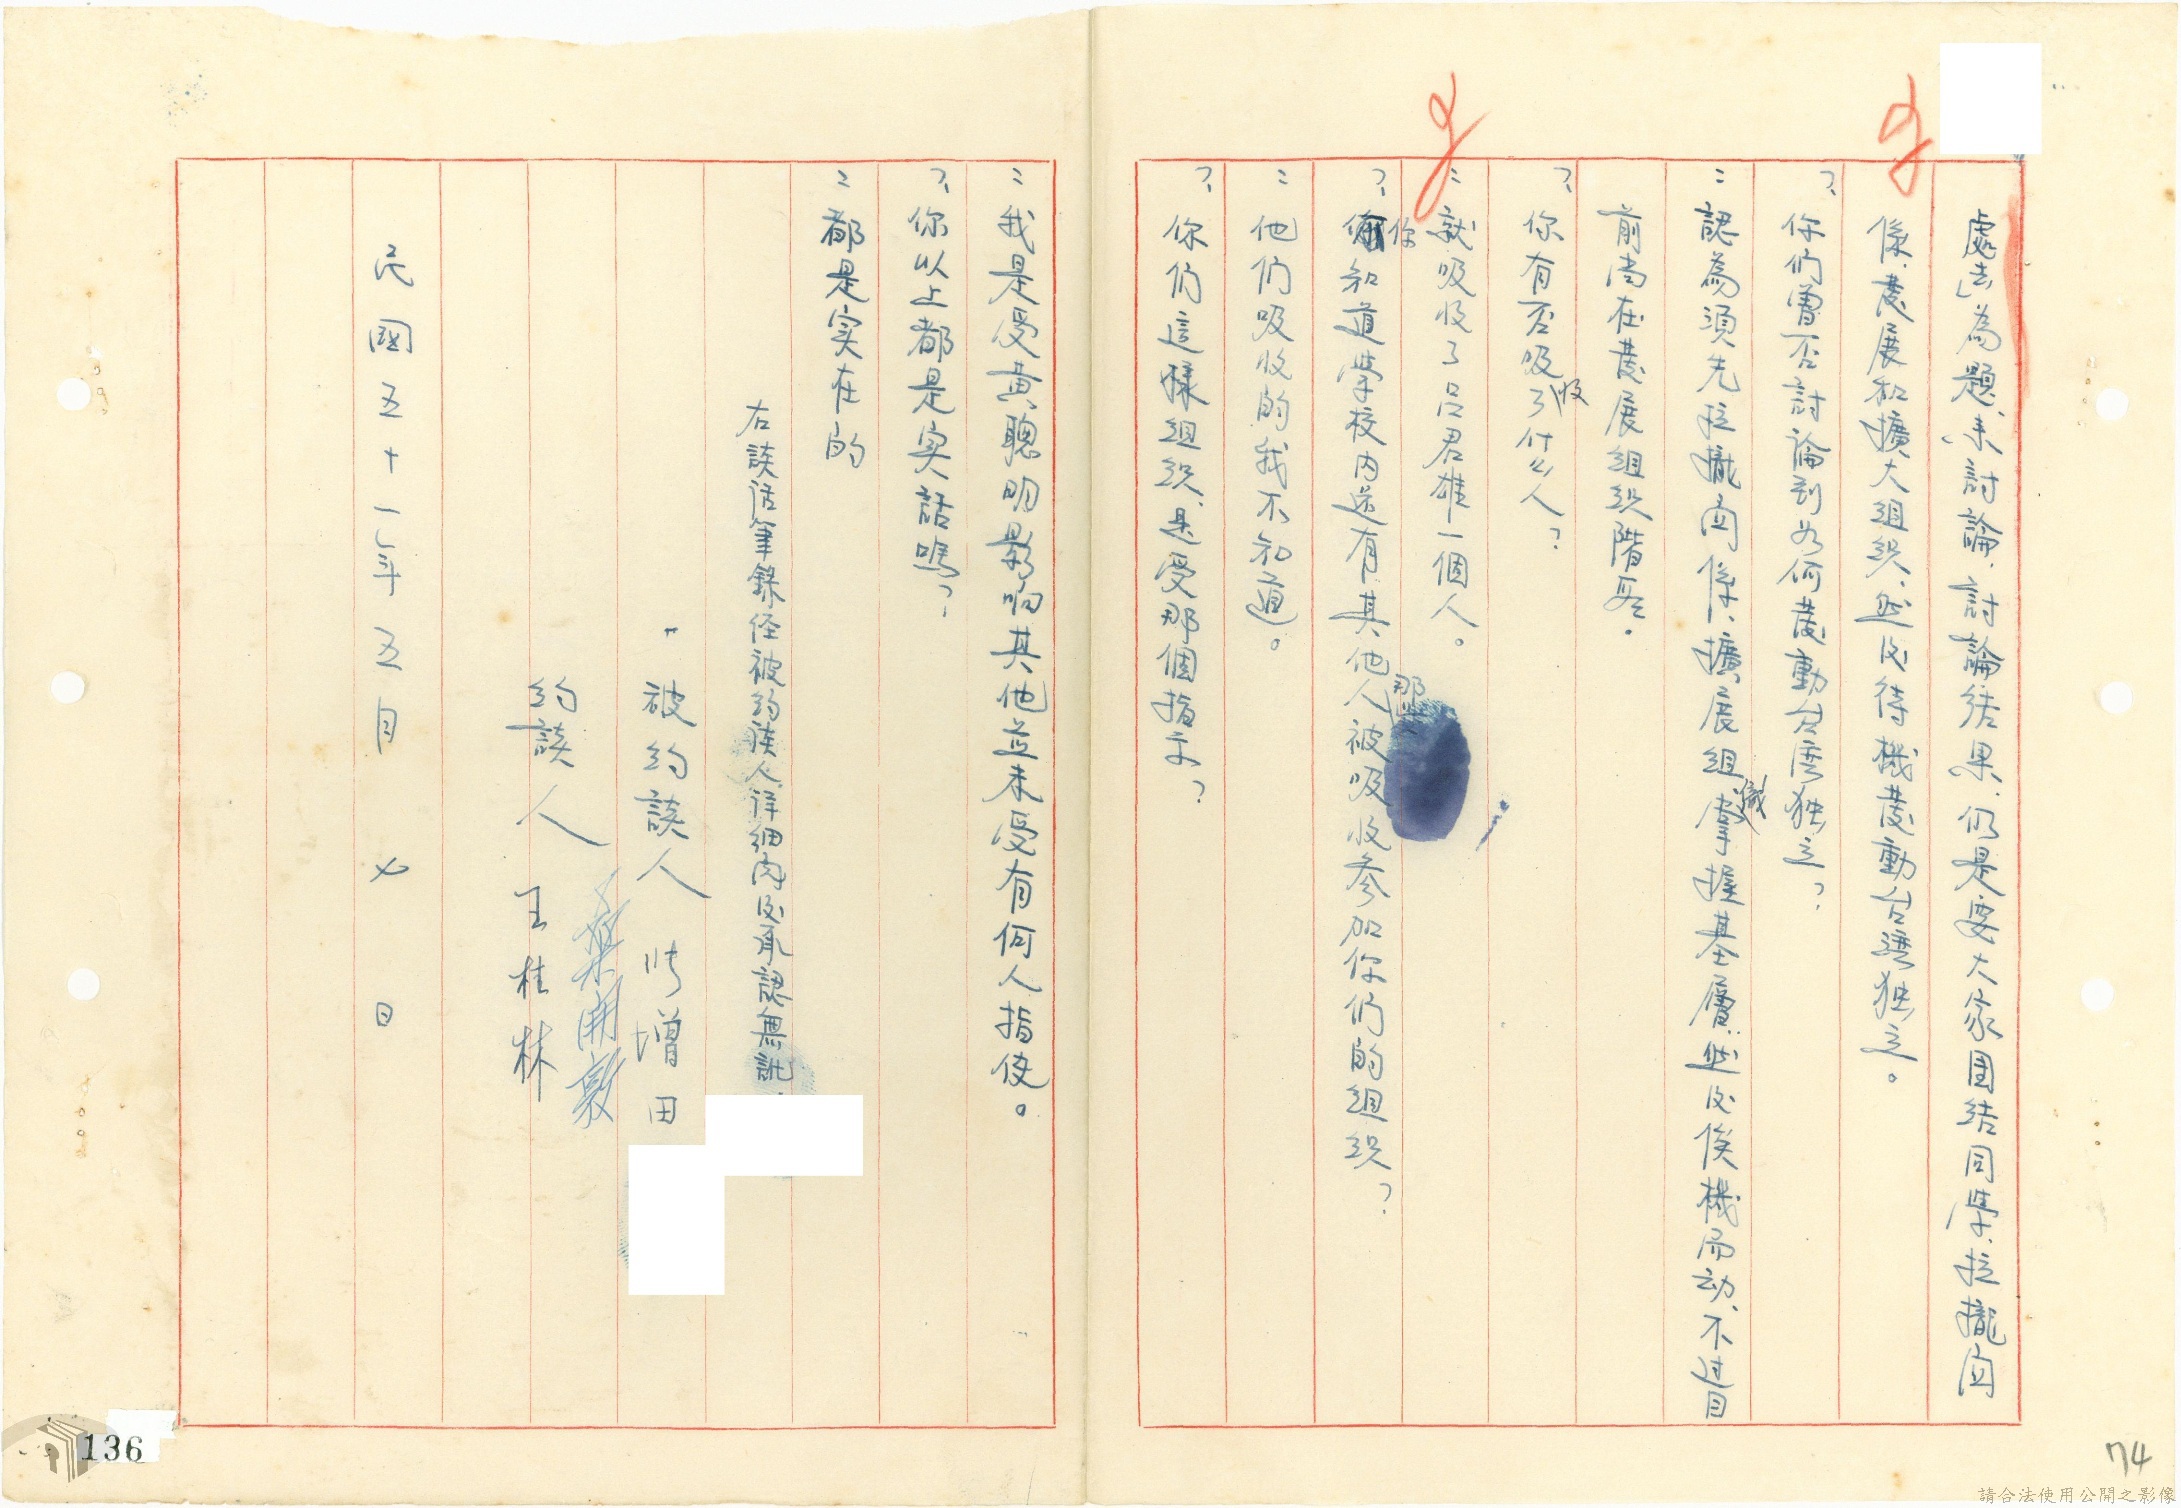 處去」為題、來討論、討論結果、仍是要大家团結同學、拉攏関
係、發展和擴大組织、然后待機發動台湾独立。
?、你們曾否討論到为何發動台湾独立?
:認為須先拉攏関係、擴展組織掌握基層、然后俟機而动、不过目
前尚在發展組织階段。
?、你有否吸收了什么人?
:就吸收了呂君雄一個人。
?、你知道學校内还有其他那些人被吸收参加你們的組织?
:他們吸收的我不知道。
?、你們這樣組织、是受那個指示?
:我是受黄聰明影响其他並未受有何人指使。
?、你以上都是实話嗎?
:都是实在的
右談话筆錄经被約談人详細閲后承認無訛.
被約談人 張增田
葉開敦
約談人 王桂林
民國五十一年五月 七 日
136
74
請合法使用公開之影像